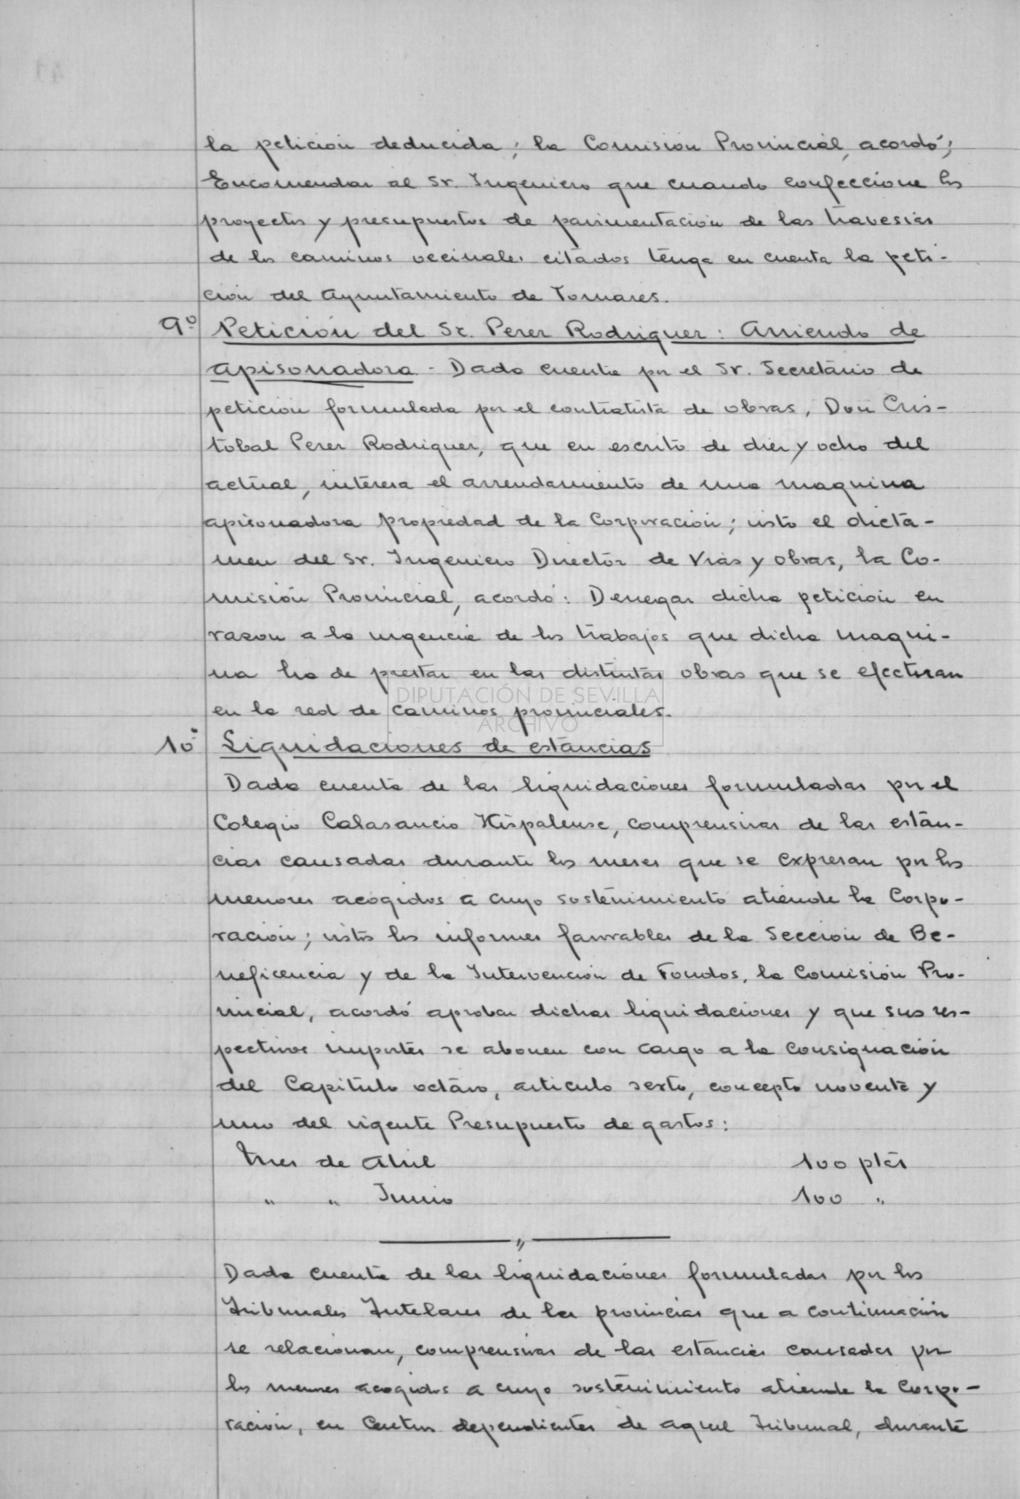 la petición deducida; la Comisión Provincial, acordó;
Encomendar al Sr. Ingeniero que cuando confeccione los
proyectos y presupuestos de pavimentación de las travesías
de los caminos vecinales citados tenga en cuenta la peti-
ción del Ayuntamiento de Tomares.
9º Petición del Sr. Perez Rodriguez: Arriendo de
apisonadora - Dada cuenta por el Sr. Secretario de
petición formulada por el contratista de obras, Don Cris-
tobal Perez Rodriguez, que en escrito de diez y ocho del
actual, interesa el arrendamiento de una maquina
apisonadora propiedad de la Corporación; visto el dicta-
men del Sr. Ingeniero Director de Vias y obras, la Co-
misión Provincial, acordó: Denegar dicha petición en
razon a la urgencia de los trabajos que dicha maqui-
na ha de prestar en las distintas obras que se efectuan
en la red de caminos provinciales.
DIPUTACIÓN DE SEVILLA
ARCHIVO
10º Liquidaciones de estancias
Dada cuenta de las liquidaciones formuladas por el
Colegio Calasancio Hispalense, comprensivas de las están-
cias causadas durante los meses que se expresan por los
menores acogidos a cuyo sostenimiento atiende la Corpo-
ración; vistos los informes favorables de la Sección de Be-
neficencia y de la Intervención de Fondos, la Comisión Pro-
vincial, acordó aprobar dichas liquidaciones y que sus res-
pectivos importes se abonen con cargo a la consignación
del Capítulo octavo, articulo sexto, concepto noventa y
uno del vigente Presupuesto de gastos:
Mes de Abril 100 ptas
" " Junio 100 "
Dada cuenta de las liquidaciones formuladas por los
Tribunales Tutelares de las provincias que a continuación
se relacionan, comprensivas de las estancias causadas por
los menores acogidos a cuyo sostenimiento atiende la Corpo-
ración, en Centros dependientes de aquel Tribunal, durante